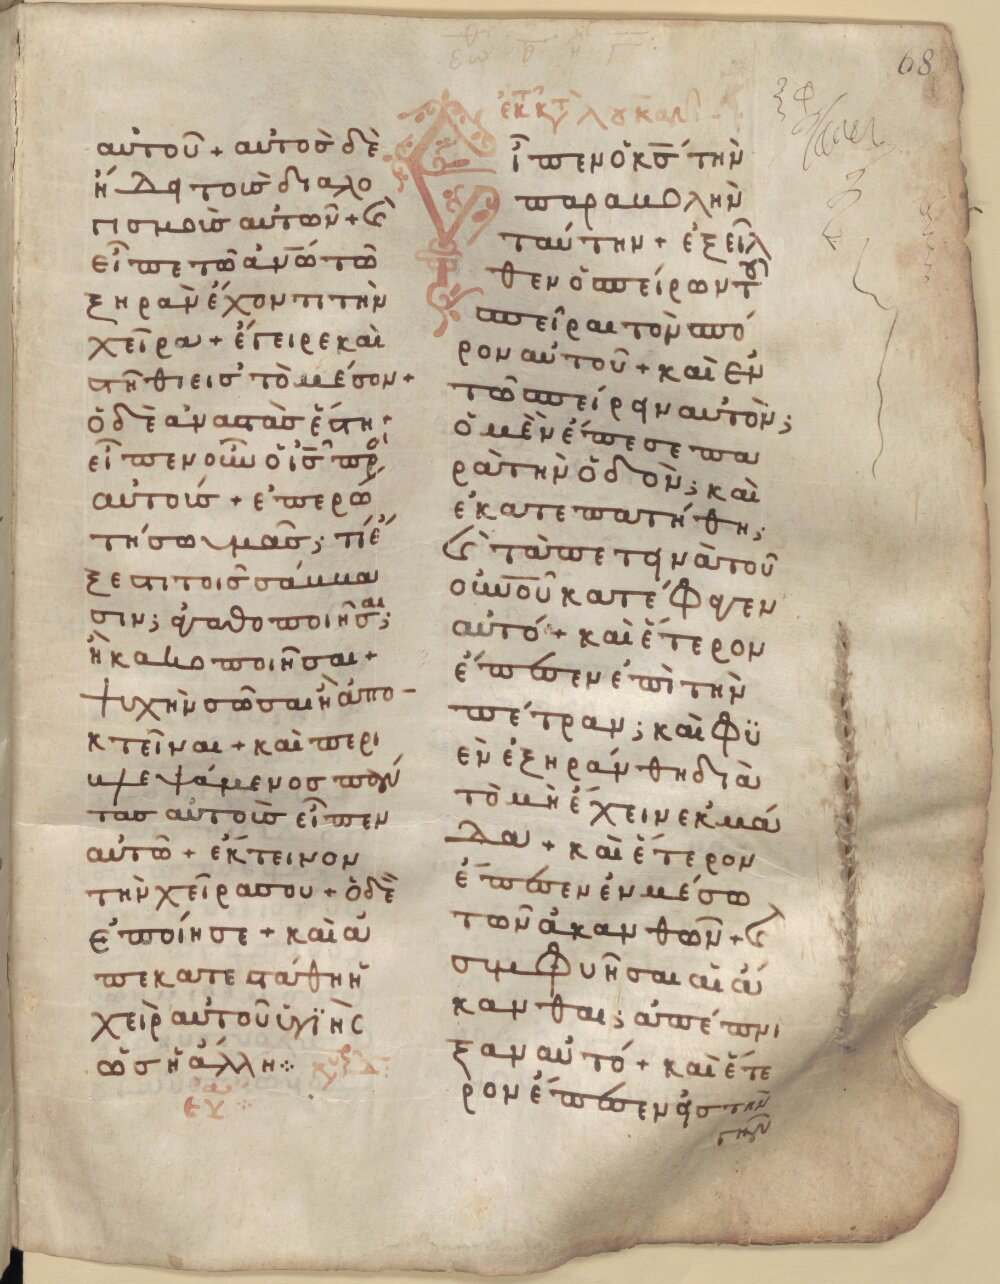 68
αὐτοῦ + αὐτὸς δὲ
ἤδει τοὺς διαλο
γισμοὺς αὐτῶν + καὶ
εἶπε τῶ ἀν̅ῶ τῶ
ξηρὰν ἔχοντι τὴν
χεῖρα + ἔγειρε καὶ
στῆθι εἰς τὸ μέσον +
ὁ δὲ ἀναστὰς ἔστη +
εἶπεν οὖν ὁ ι̅ς̅ πρὸ
αὐτούς + ἐπερω
τήσω ὑμᾶς; τί ἔ
ξεστι τοῖς σάββα
σιν; ἀγαθοποιῆσαι;
ἢ κακοποιῆσαι +
ψυχὴν σῶσαι ἢ ἀπο
κτεῖναι + καὶ περι
βλεψάμενος πάν
τας αὐτοὺς εἶπεν
αὐτῶ + ἔκτεινον
τὴν χεῖρα σου + ὁ δὲ
ἐποίησε + καὶ ἀ
πεκατεστάθη ἡ
χεὶρ αὐτοῦ ὑγϊὴς
ὡς ἡ ἄλλη
ἐκ τ κτ λουκαν
Εἶπεν ὁ κ̅ς̅ τὴν
παραβολὴν
ταύτην + ἐξῆλ
θεν ὁ σπείρων τοῦ
σπεῖραι τὸν σπό
ρον αὐτοῦ + καὶ ἐν
τῶ σπείρειν αὐτὸν;
ὃ μὲν ἔπεσε πα
ρὰ τὴν ὁδὸν; καὶ
κατεπατήθη;
καὶ τὰ πετεινὰ τοῦ
οὐνοῦ κατέφαγεν
αὐτό + καὶ ἕτερον
ἔπεσεν ἐπὶ τὴν
πέτραν; καὶ φυ
ὲν ἐξηράνθη διὰ
τὸ μὴ ἔχειν ἰκμά
δα + καὶ ἕτερον
ἔπεσεν ἐν μέσω
τῶν ἀκανθῶν + καὶ
συμφυεῖσαι αἱ ἄ
κανθαι; ἀπέπνι
ξαν αὐτό + καὶ ἕτε
ρον ἔπεσεν εἰς τὴν
γῆν